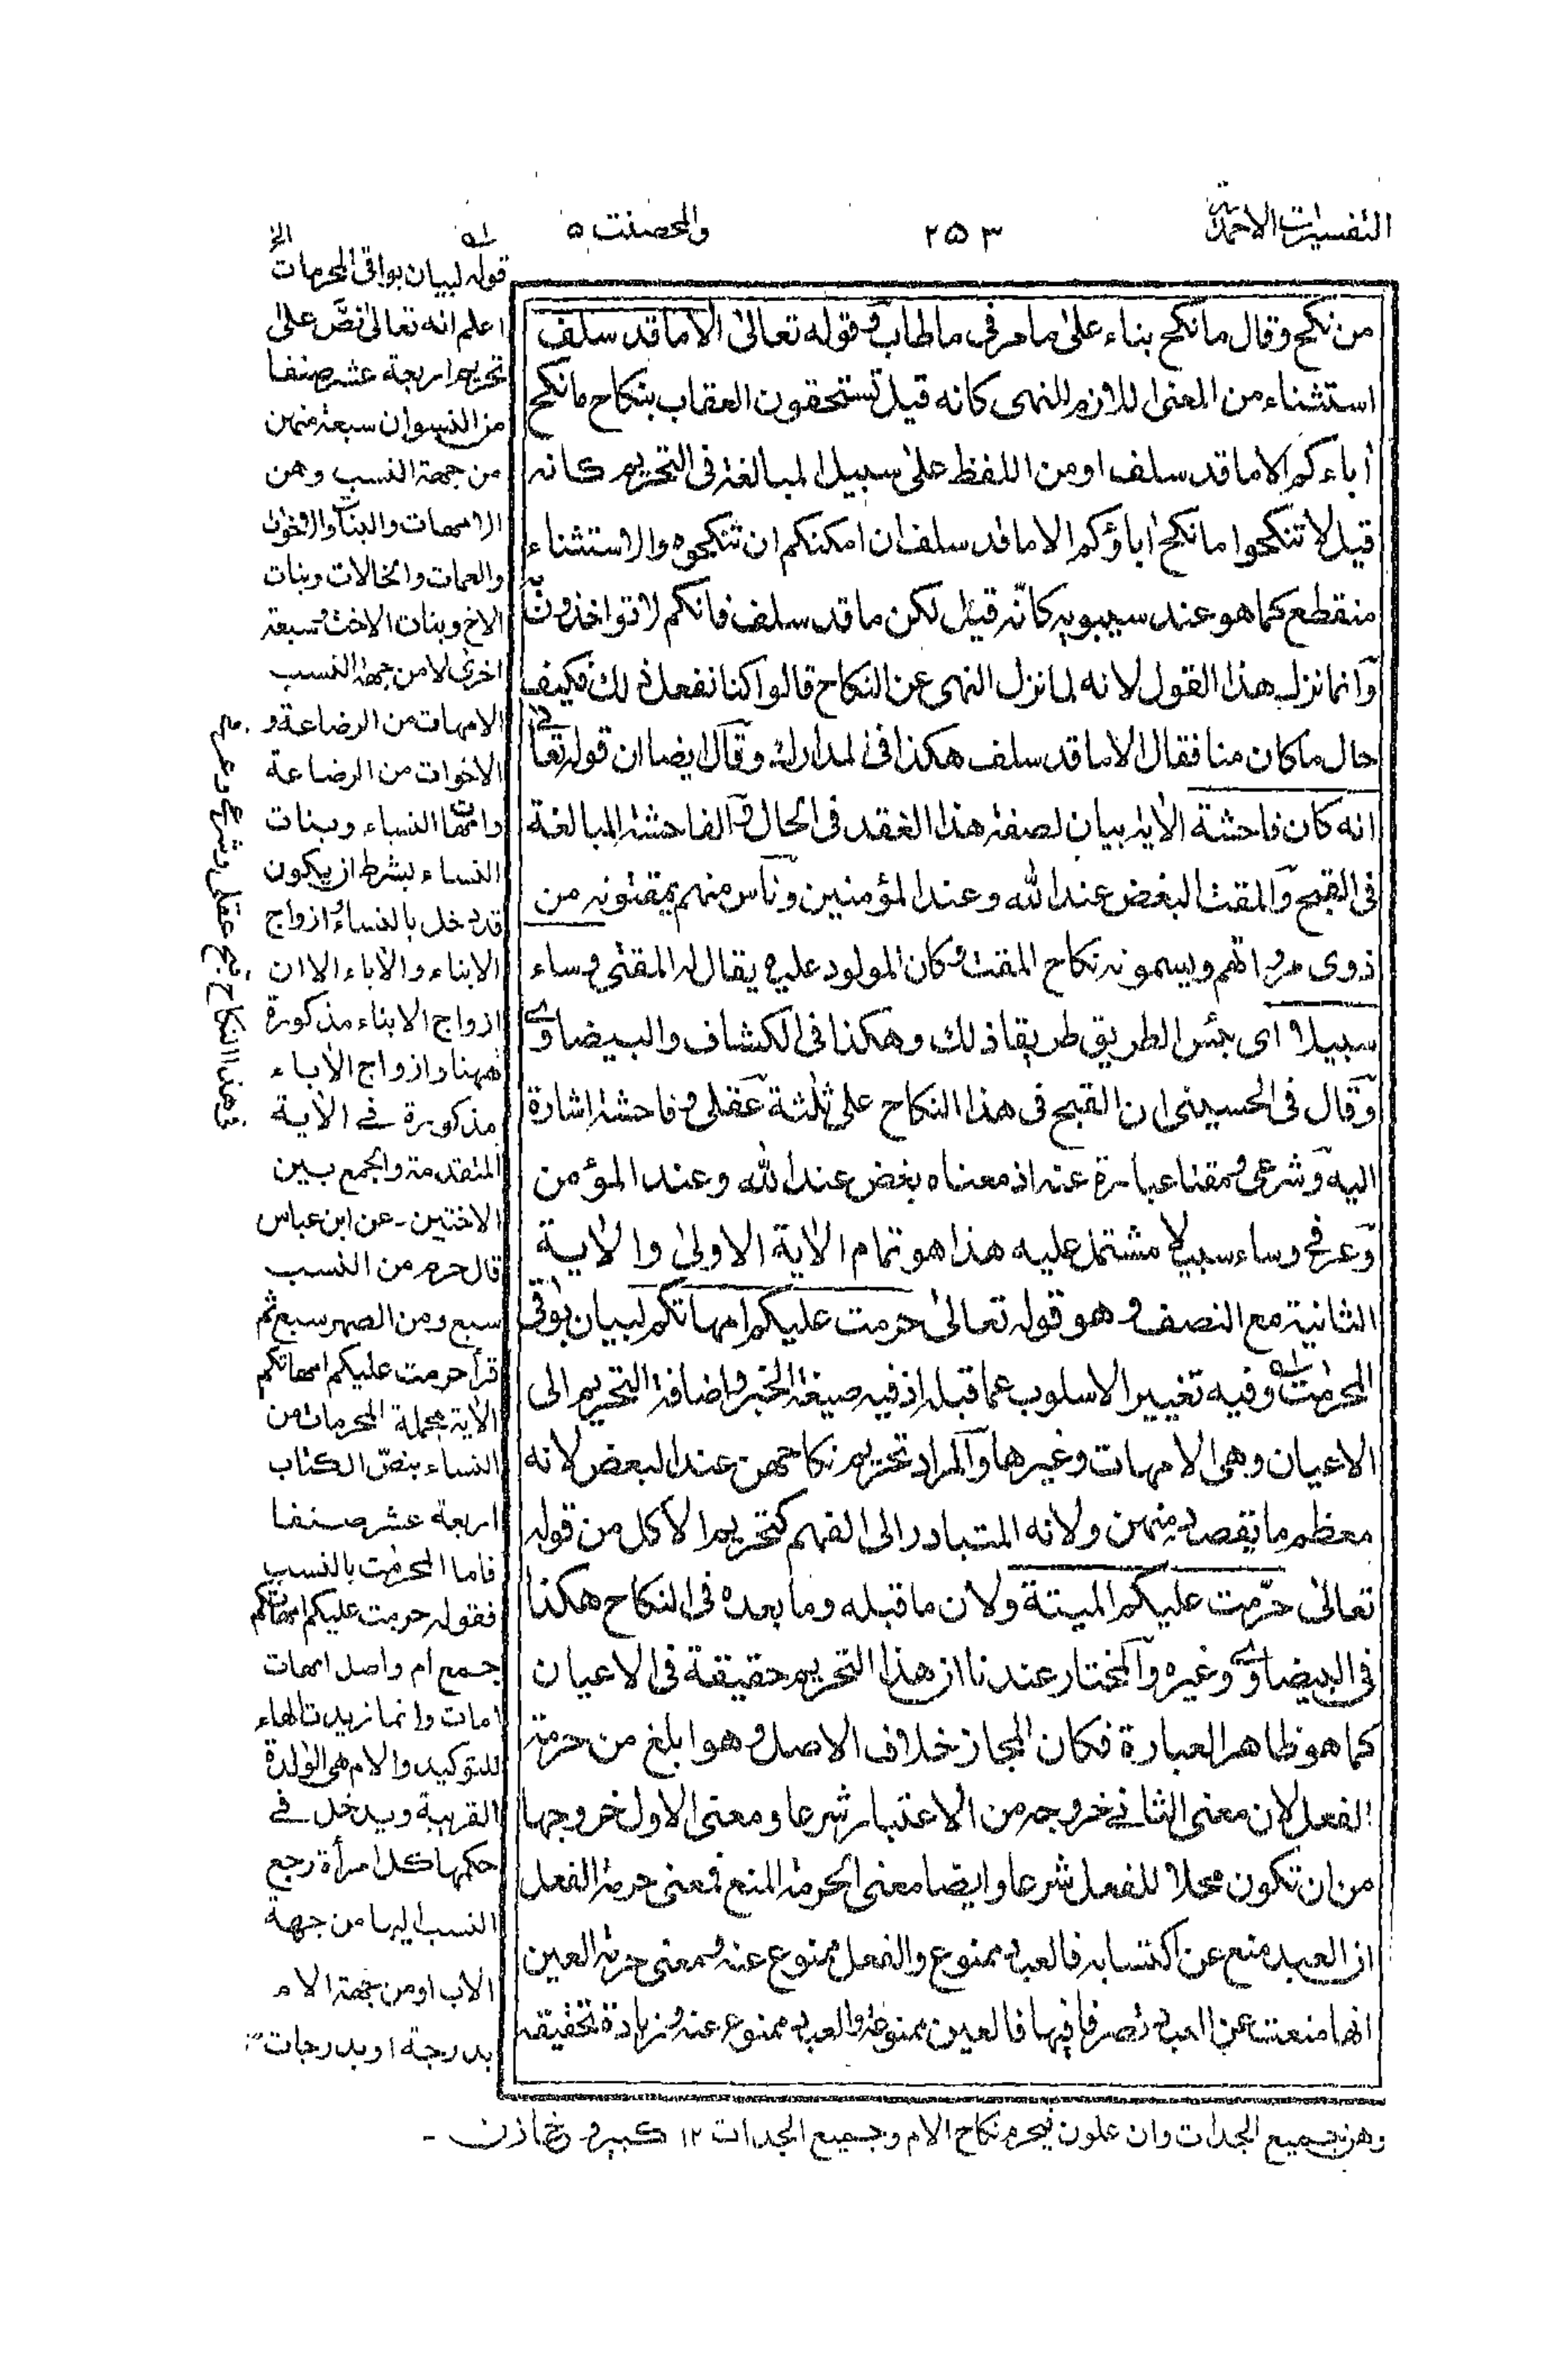 التفسيرات الاحمدية
٢٥٣
والمحصنت ٥
من نكح وقال ما نكح بناء على ما مر فى ما طاب و قوله تعالىٰ الا ما قد سلف
استثناء من المعنى اللازم للنهى كانه قيل تستحقون العقاب بنكاح ما نكح
اٰباءكم الا ما قد سلف او من اللفظ على سبيل المبالغة فى التحريم كانه
قيل لا تنكحوا ما نكح اٰباؤكم الا ما قد سلف ان امكنكم ان تنكحوه والاستثناء
منقطع كما هو عند سيبويه كانّه قيل لكن ما قد سلف فانكم لا تواخذون به
وانما نزل هذا القول لانه لما نزل النهى عن النكاح قالوا كنا نفعل ذلك فكيف
حال ما كان منا فقال الا ما قد سلف هكذا فى المدارك وقال ايضا ان قوله تعالى
انه كان فاحشة الاٰية بيان لصفة هذا العقد فى الحال و الفاحشة المبالغة
فى القبح والمقت البغض عند الله وعند المؤمنين وناس منهم يمقتونه من
ذوى مرواتهم ويسمونه نكاح المقت و كان المولود عليه يقال له المقتى و ساء
سبيلا اى بئس الطريق طريقا ذلك وهكذا فى الكشاف والبيضاوى
وقال فى الحسينى ان القبح فى هذا النكاح على ثلٰثة عقلى و فاحشة اشارة
اليه وشرعى و مقتا عبارة عنه اذ معناه بغض عند الله وعند المؤمن
وعرفى وساء سبيلا مشتمل عليه هذا هو تمام الاٰية الاولىٰ والاٰية
الثانية مع النصف و هو قوله تعالىٰ حرمت عليكم امهاتكم لبيان بواقى
المحرمٰت وفيه تغيير الاسلوب عما قبله اذ فيه صيغة الخبر و اضافة التحريم الى
الاعيان وهى الامهات وغيرها والمراد تحريم نكاحهن عند البعض لانه
معظم ما يقصد منهن ولانه المتبادر الى الفهم كتحريم الاكل من قوله
تعالىٰ حرّمت عليكم الميتة ولان ما قبله وما بعده فى النكاح هكذا
فى البيضاوى وغيره والمختار عندنا ان هذا التحريم حقيقة فى الاعيان
كما هو ظاهر العبارة فكان المجاز خلاف الاصل و هو ابلغ من حرمة
الفعل لان معنى الثانى خروجه من الاعتبار شرعا ومعنى الاول خروجها
من ان تكون محلا للفعل شرعا وايضا معنى الحرمة المنع فمعنى حرمة الفعل
ان العبد منع عن اكتسابه فالعبد ممنوع والفعل ممنوع عنه و معنى حرمة العين
انها منعت عن العبد تصرفا فيها فالعين ممنوعة والعبد ممنوع عنه و زيادة تحقيقه
قوله لبيان بواقى المحرمات الخ
اعلم انه تعالى نصّ على
تحريم اربعة عشر صنفا
من النسوان سبعة منهن
من جهة النسب وهن
الامهات والبنات والاخوات
والعمات والخالات وبنات
الاخ وبنات الاخت و سبعة
اخرى لا من جهة النسب
الامهات من الرضاعة و
الاخوات من الرضاعة
وامهات النساء وبنات
النساء بشرط ان يكون
قد دخل بالنساء و ازواج
الابناء والاٰباء الا ان
ازواج الابناء مذكورة
ههنا وازواج الاٰباء
مذكورة فى الاٰية
المتقدمة والجمع بين
الاختين - عن ابن عباس
قال حرم من النسب
سبع ومن الصهر سبع ثم
قرأ حرمت عليكم امهاتكم
الاٰية فجملة المحرمات من
النساء بنصّ الكتاب
اربعة عشر صنفا
فاما المحرمٰت بالنسب
فقوله حرمت عليكم امهاتكم
جمع ام واصل امهات
امات وانما زيدت الهاء
للتوكيد والام هى الوالدة
القريبة ويدخل فى
حكمها كل امرأة رجع
النسب اليها من جهة
الاب او من جهة الام
بدرجة او بدرجات
وهن جميع الجدات وان علون فيحرم نكاح الام وجميع الجدات ١٢ كبير و خازن -